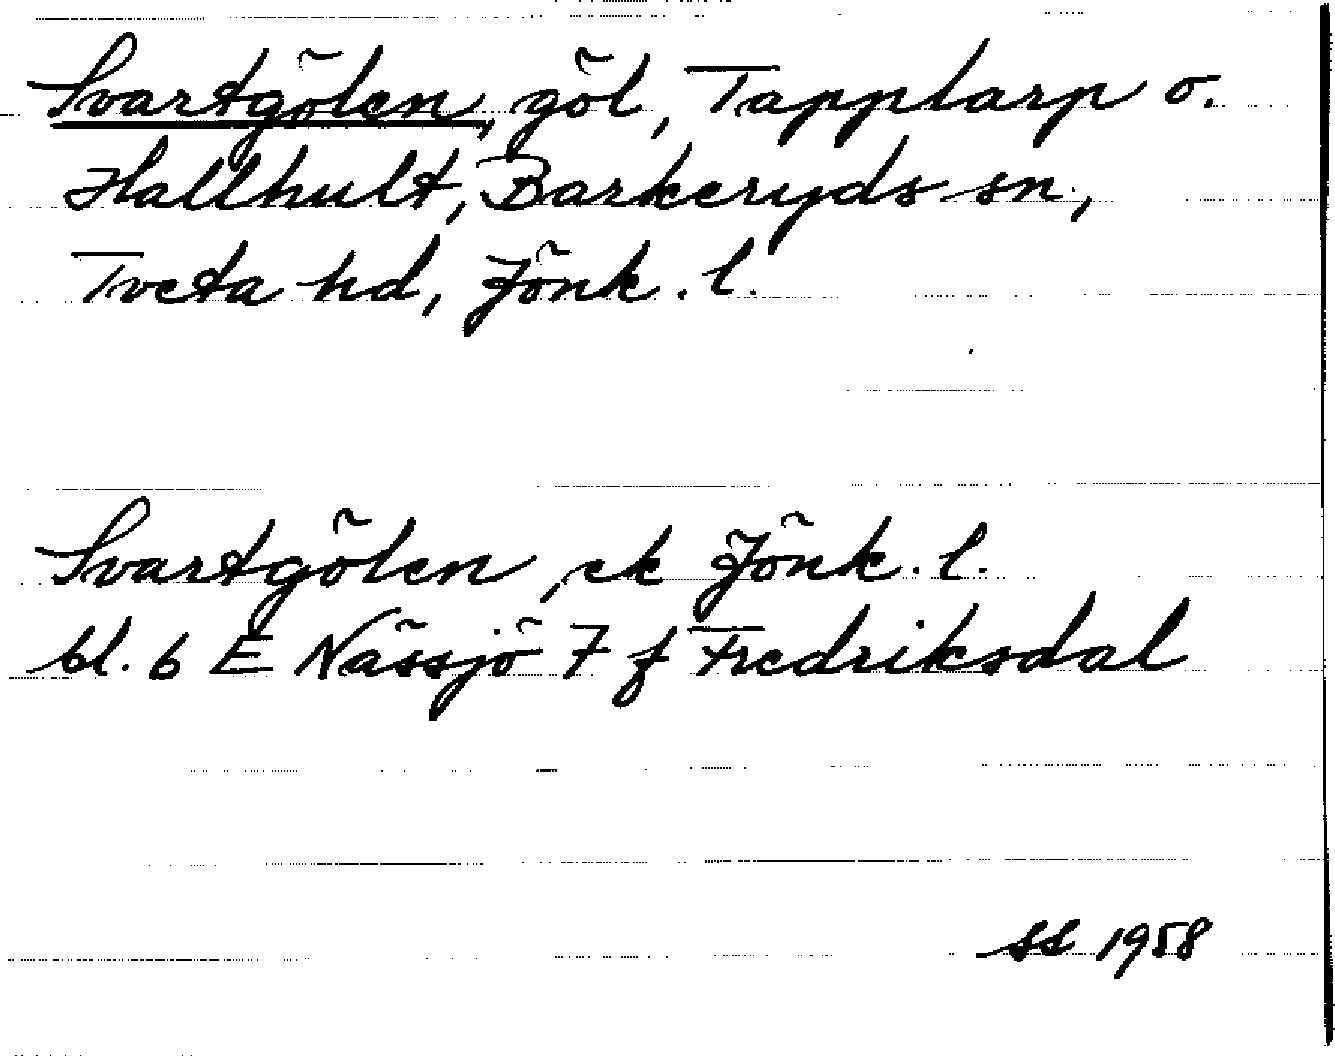 Svartgölen, göl, Tapplarp o.
Hallhult, Barkeryds sn,
Tveta hd, Jönk. l.
Svartgölen, ek Jönk. l.
bl. 6 E Nässjö 7 f Fredriksdal
SS 1958